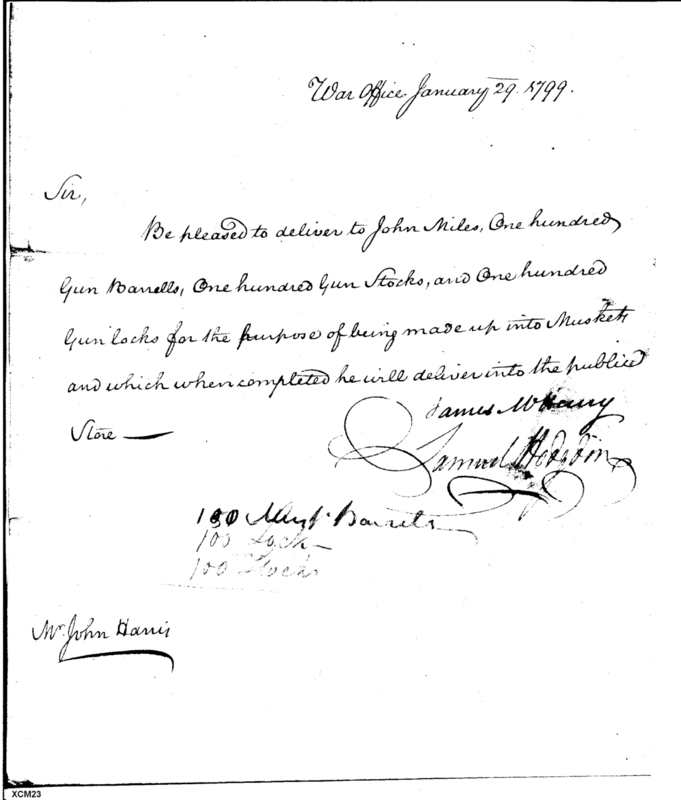 War Office January 29. 1799.
Sir,
Be pleased to deliver to John Miles, One hundred
Gun Barrells, One hundred Gun Stocks, and One hundred
Gun locks for the purpose of being made up into Muskets
and which when completed he will deliver into the publick
Store —
James McHenry
Samuel Hodgdon
100 Barrels
100 Lock
100 Stocks
Mr. John Harris
XCM23